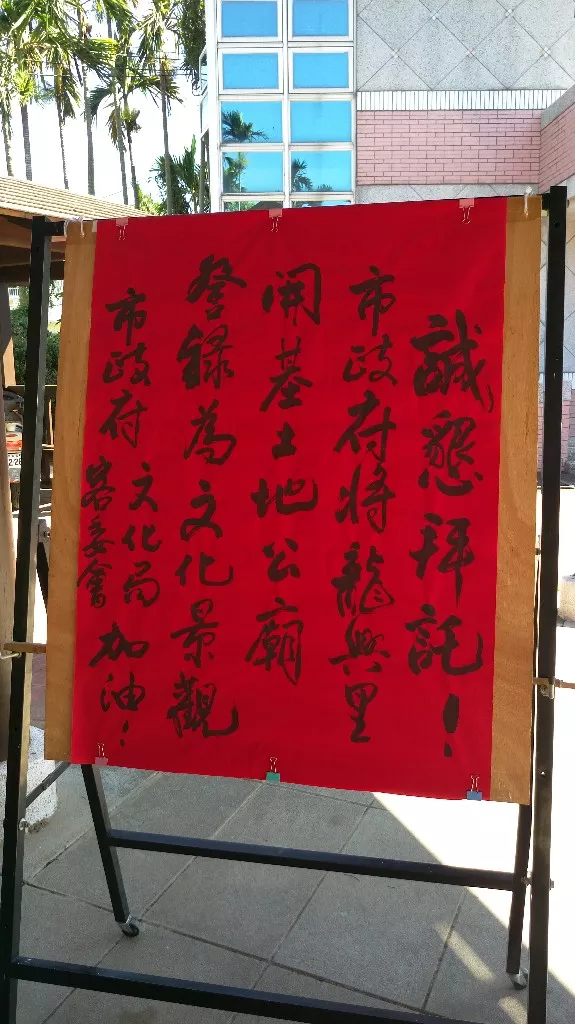 誠懇拜託！
市政府將龍興里
開基土地公廟
登錄為文化景觀
市政府文化局客委會加油！